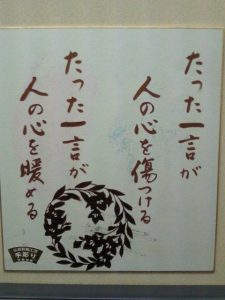 たった一言が
人の心を傷つける
たった一言が
人の心を暖める
手彫り